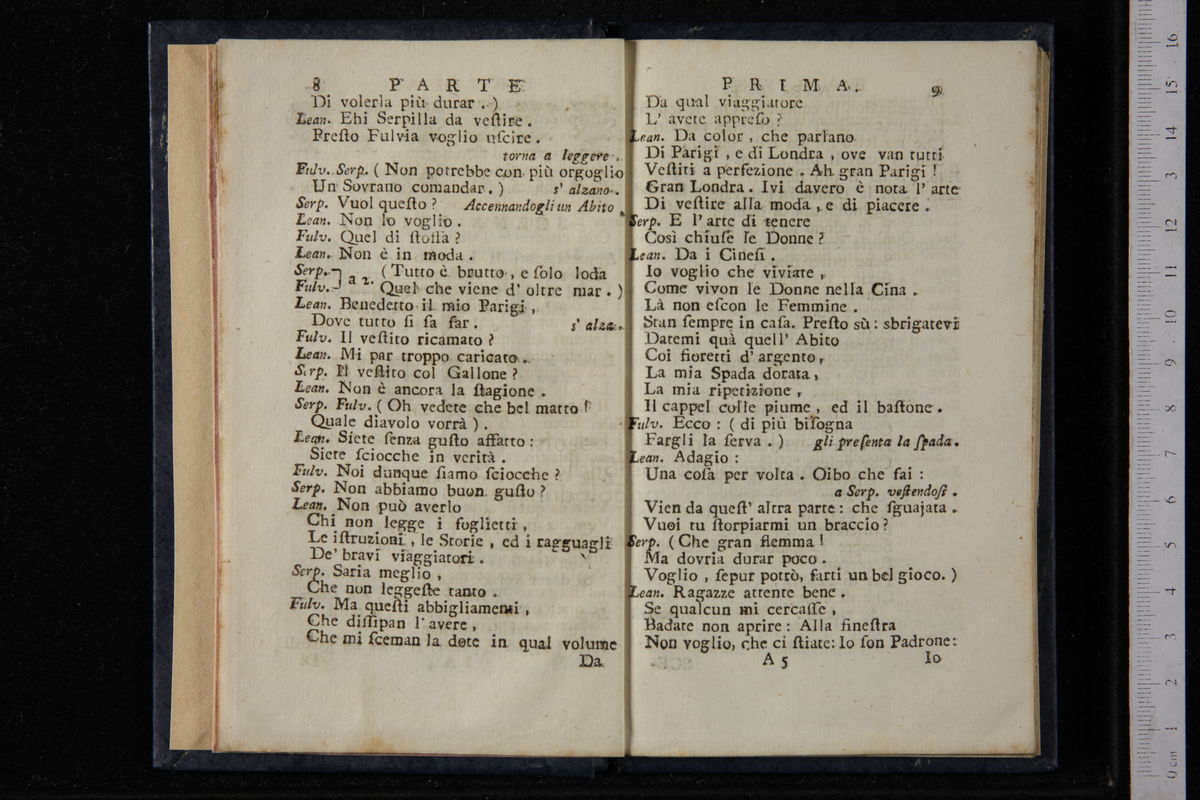 8 PARTE
Di volerla più durar . )
Lean. Ehi Serpilla da veſtire .
Preſto Fulvia voglio uſcire .
torna a leggere .
Fulv. Serp. ( Non potrebbe con più orgoglio
Un Sovrano comandar . ) s' alzano .
Serp. Vuol queſto ? Accennandogli un Abito .
Lean. Non lo voglio .
Fulv. Quel di ſtoffa ?
Lean. Non è in moda .
Serp. ( Tutto è brutto , e ſolo loda
a 2.
Fulv. Quel che viene d' oltre mar . )
Lean. Benedetto il mio Parigi ,
Dove tutto ſi ſa far . s' alza .
Fulv. Il veſtito ricamato ?
Lean. Mi par troppo caricato .
Serp. Il veſtito col Gallone ?
Lean. Non è ancora la ſtagione .
Serp. Fulv. ( Oh vedete che bel matto !
Quale diavolo vorrà ) .
Lean. Siete ſenza guſto affatto :
Siete ſciocche in verità .
Fulv. Noi dunque ſiamo ſciocche ?
Serp. Non abbiamo buon guſto ?
Lean. Non può averlo
Chi non legge i foglietti ,
Le iſtruzioni , le Storie , ed i ragguagli
De' bravi viaggiatori .
Serp. Saria meglio ,
Che non leggeſte tanto .
Fulv. Ma queſti abbigliamenti ,
Che diſſipan l' avere ,
Che mi ſceman la dote in qual volume
Da
PRIMA. 9
Da qual viaggiatore
L' avete appreſo ?
Lean. Da color , che parlano
Di Parigi , e di Londra , ove van tutti
Veſtiti a perfezione . Ah gran Parigi !
Gran Londra . Ivi davero è nota l' arte
Di veſtire alla moda , e di piacere .
Serp. E l' arte di tenere
Così chiuſe le Donne ?
Lean. Da i Cineſi .
Io voglio che viviate ,
Come vivon le Donne nella Cina .
Là non eſcon le Femmine .
Stan ſempre in caſa. Preſto sù : sbrigatevi
Datemi quà quell' Abito
Coi fioretti d' argento ,
La mia Spada dorata ,
La mia ripetizione ,
Il cappel colle piume , ed il baſtone .
Fulv. Ecco : ( di più biſogna
Fargli la ſerva . ) gli preſenta la ſpada .
Lean. Adagio :
Una coſa per volta . Oibo che fai :
a Serp. veſtendoſi .
Vien da queſt' altra parte : che ſguajata .
Vuoi tu ſtorpiarmi un braccio ?
Serp. ( Che gran flemma !
Ma dovria durar poco .
Voglio , ſepur potrò, farti un bel gioco. )
Lean. Ragazze attente bene .
Se qualcun mi cercaſſe ,
Badate non aprire : Alla fineſtra
Non voglio, che ci ſtiate: Io ſon Padrone:
A 5 Io
0 cm 1 2 3 4 5 6 7 8 9 10 11 12 13 14 15 16